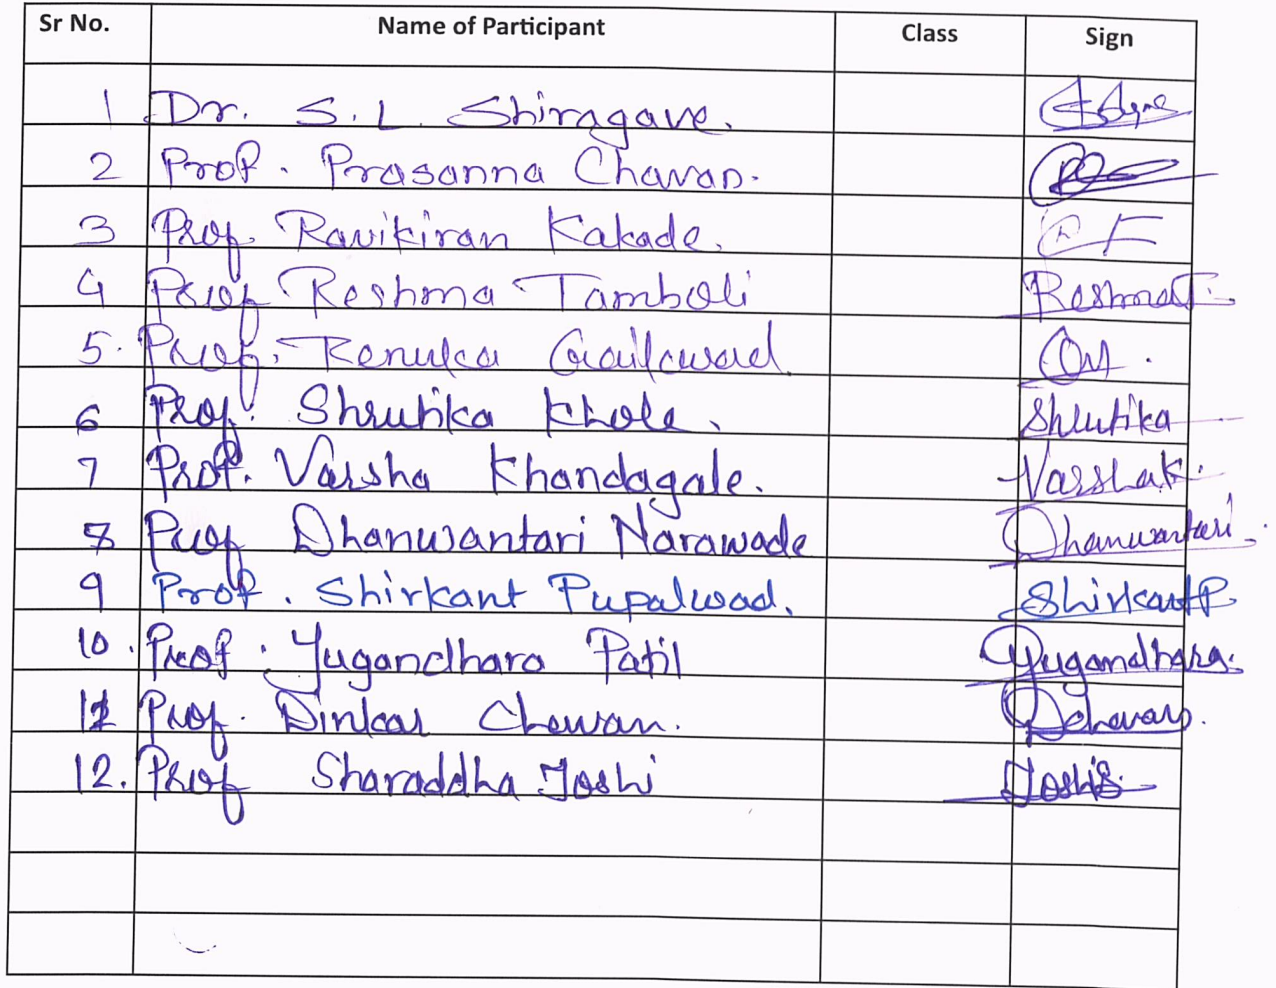 Sr No. Name of Participant Class Sign
1 Dr. S. L. Shiragave.
2 Prof. Prasanna Chavan.
3 Prof. Ravikiran Kakade.
4 Prof Reshma Tamboli ReshmaT.
5. Prof. Renuka Gaikwad
6 Prof. Shrutika Khole. Shrutika
7 Prof. Varsha Khandagale. Varshak.
8 Prof Dhanwantari Narawade Dhanwantari.
9 Prof. Shirkant Pupalwad. ShirkantP.
10. Prof. Yugandhara Patil Yugandhara.
11 Prof. Dinkar Chewan. Dchavan.
12. Prof Sharaddha Joshi JoshiS.